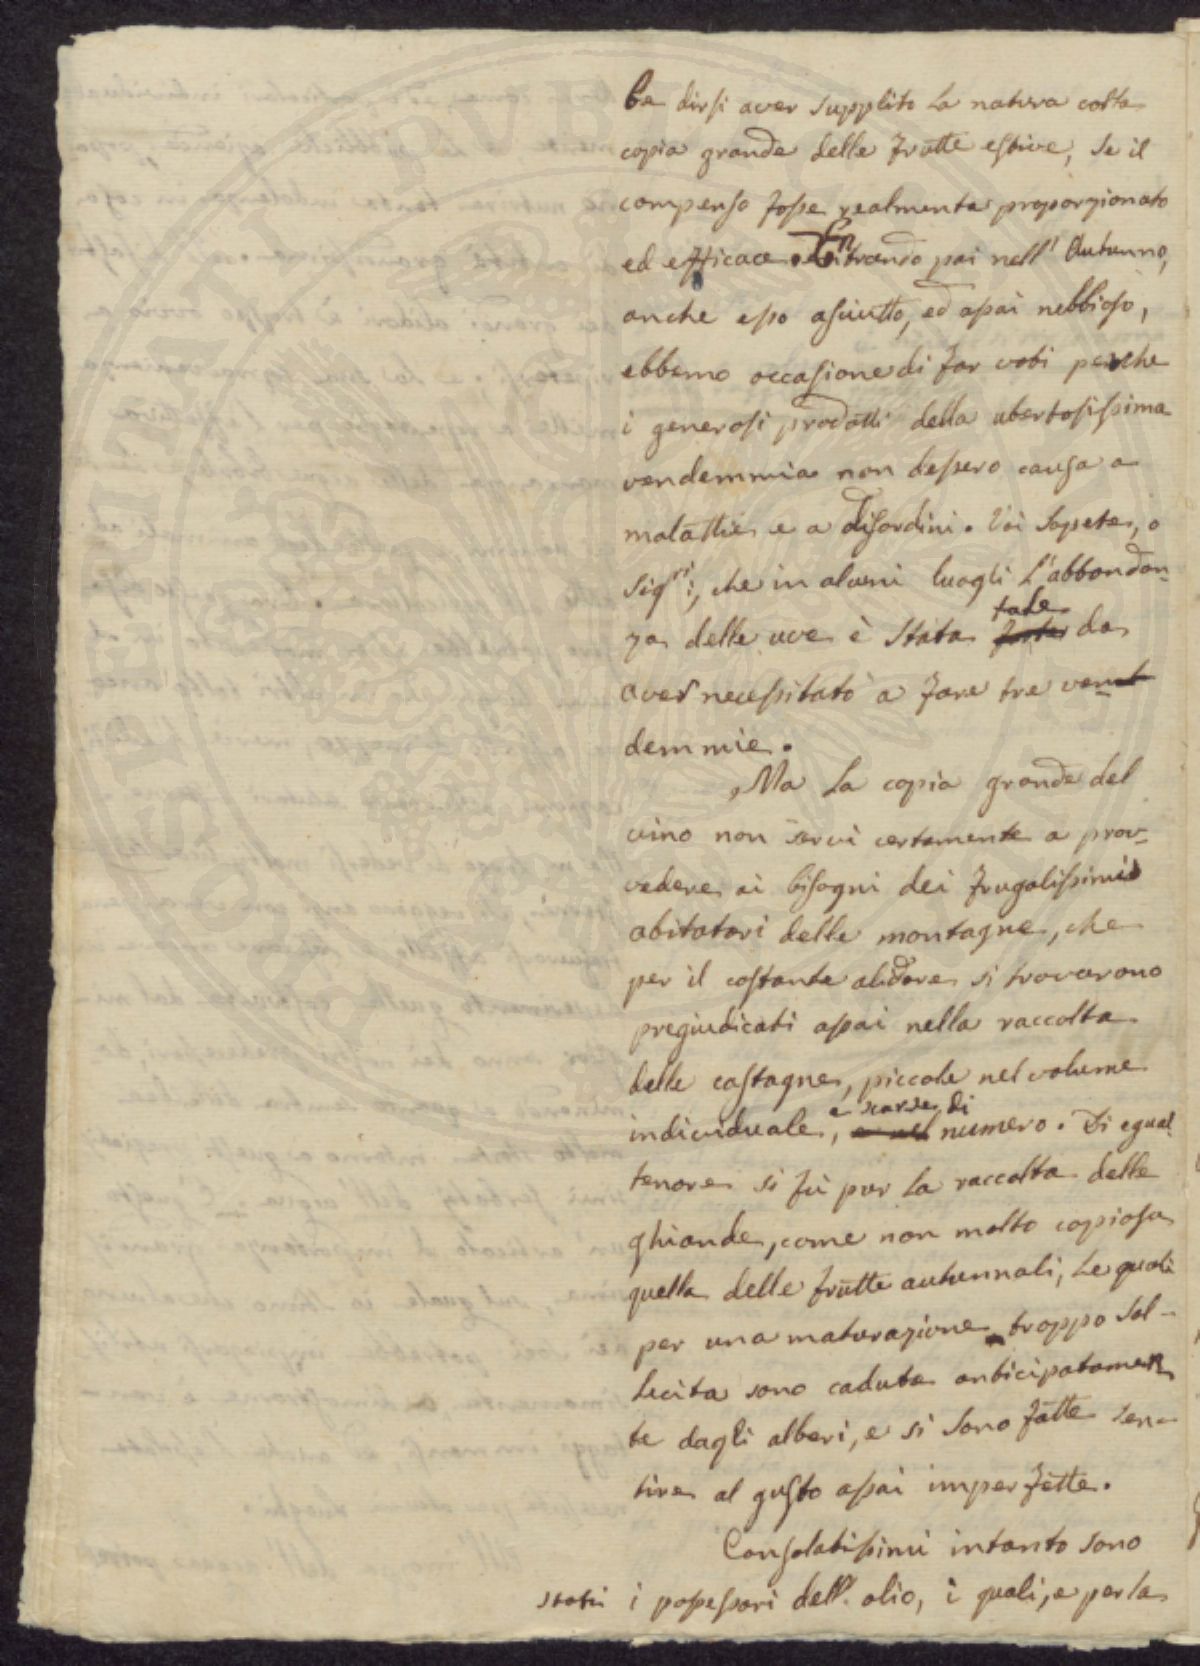 be dirsi aver supplito la natura colla
copia grande delle frutte estive, se il
compenso fosse realmente proporzionato
ed efficace. Entrando poi nell' Autunno,
anche esso asciutto, ed assai nebbioso,
ebbemo occasione di far voti perche
i generosi prodotti della ubertosissima
vendemmia non dessero causa a
malattie e a disordini. Voi sapete, o
Sig.ri, che in alcuni luoghi l'abbondan-
za delle uve è stata tale da
aver necessitato a fare tre ven-
demmie.
Ma la copia grande del
vino non servì certamente a prov-
vedere ai bisogni dei frugalissimi
abitatori delle montagne, che
per il costante alidore si trovarono
pregiudicati assai nella raccolta
delle castagne, piccole nel volume
individuale, e scarse di numero. Di egual
tenore si fù pur la raccolta delle
ghiande, come non molto copiosa
quella delle frutte autunnali, le quali
per una maturazione troppo sol-
lecita sono cadute anticipatamen
te dagli alberi, e si sono fatte sen-
tire al gusto assai imperfette.
Consolatissimi intanto sono
stati i possessori dell' olio, i quali, e per la